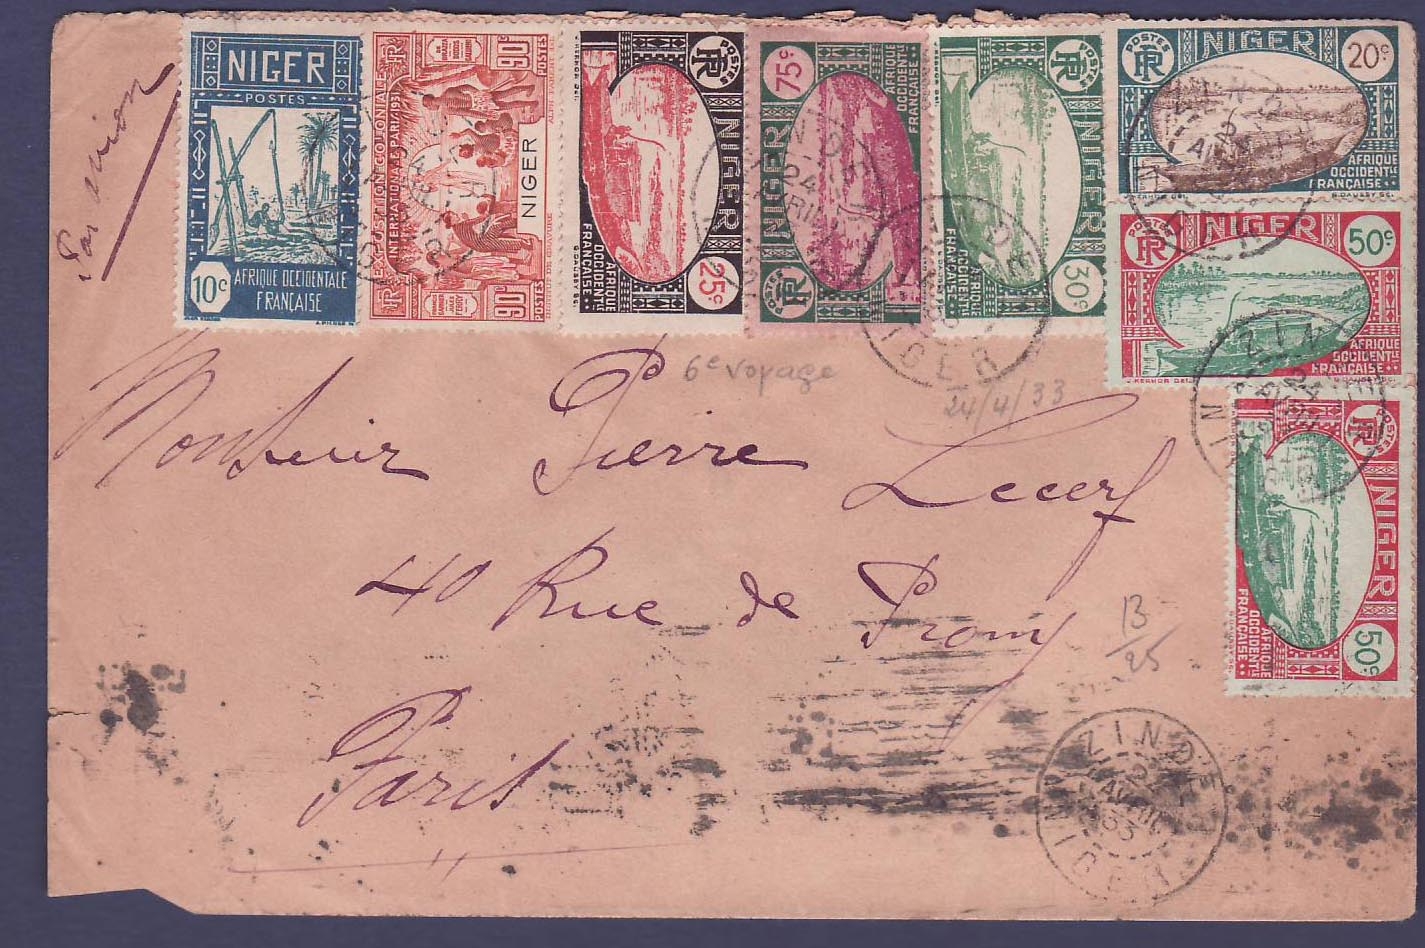 Par avion
NIGER
POSTES
10c
AFRIQUE OCCIDENTALE
FRANÇAISE
EXPOSITION COLONIALE
INTERNATIONALE PARIS 1931
RF
NIGER
90c
POSTES
90c
POSTES
RF
POSTES
NIGER
25c
AFRIQUE
OCCIDENTLE
FRANÇAISE
75c
NIGER
RF
POSTES
AFRIQUE
OCCIDENTLE
FRANÇAISE
RF
POSTES
NIGER
30c
AFRIQUE
OCCIDENTLE
FRANÇAISE
POSTES
RF
NIGER
20c
AFRIQUE
OCCIDENTLE
FRANÇAISE
POSTES
RF
NIGER
50c
AFRIQUE
OCCIDENTLE
FRANÇAISE
J. KERHOR DEL.
G. DAUSSY SC.
RF
POSTES
NIGER
50c
AFRIQUE
OCCIDENTLE
FRANÇAISE
6e voyage
24/4/33
Monsieur Pierre Lecerf
40 Rue de Prony
13/25
Paris
ZINDER
24
AVRIL
33
NIGER